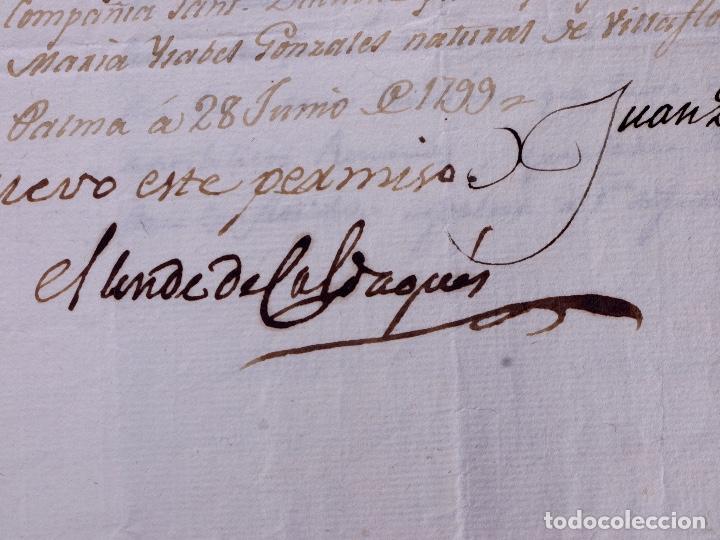 Compañia
Maria Ysabel Gonzales natural de Villaflo
Palma á 28 Junio de 1799
Juan
uevo este permiso.
el Conde de Caldagués
todocoleccion
todocoleccion.net